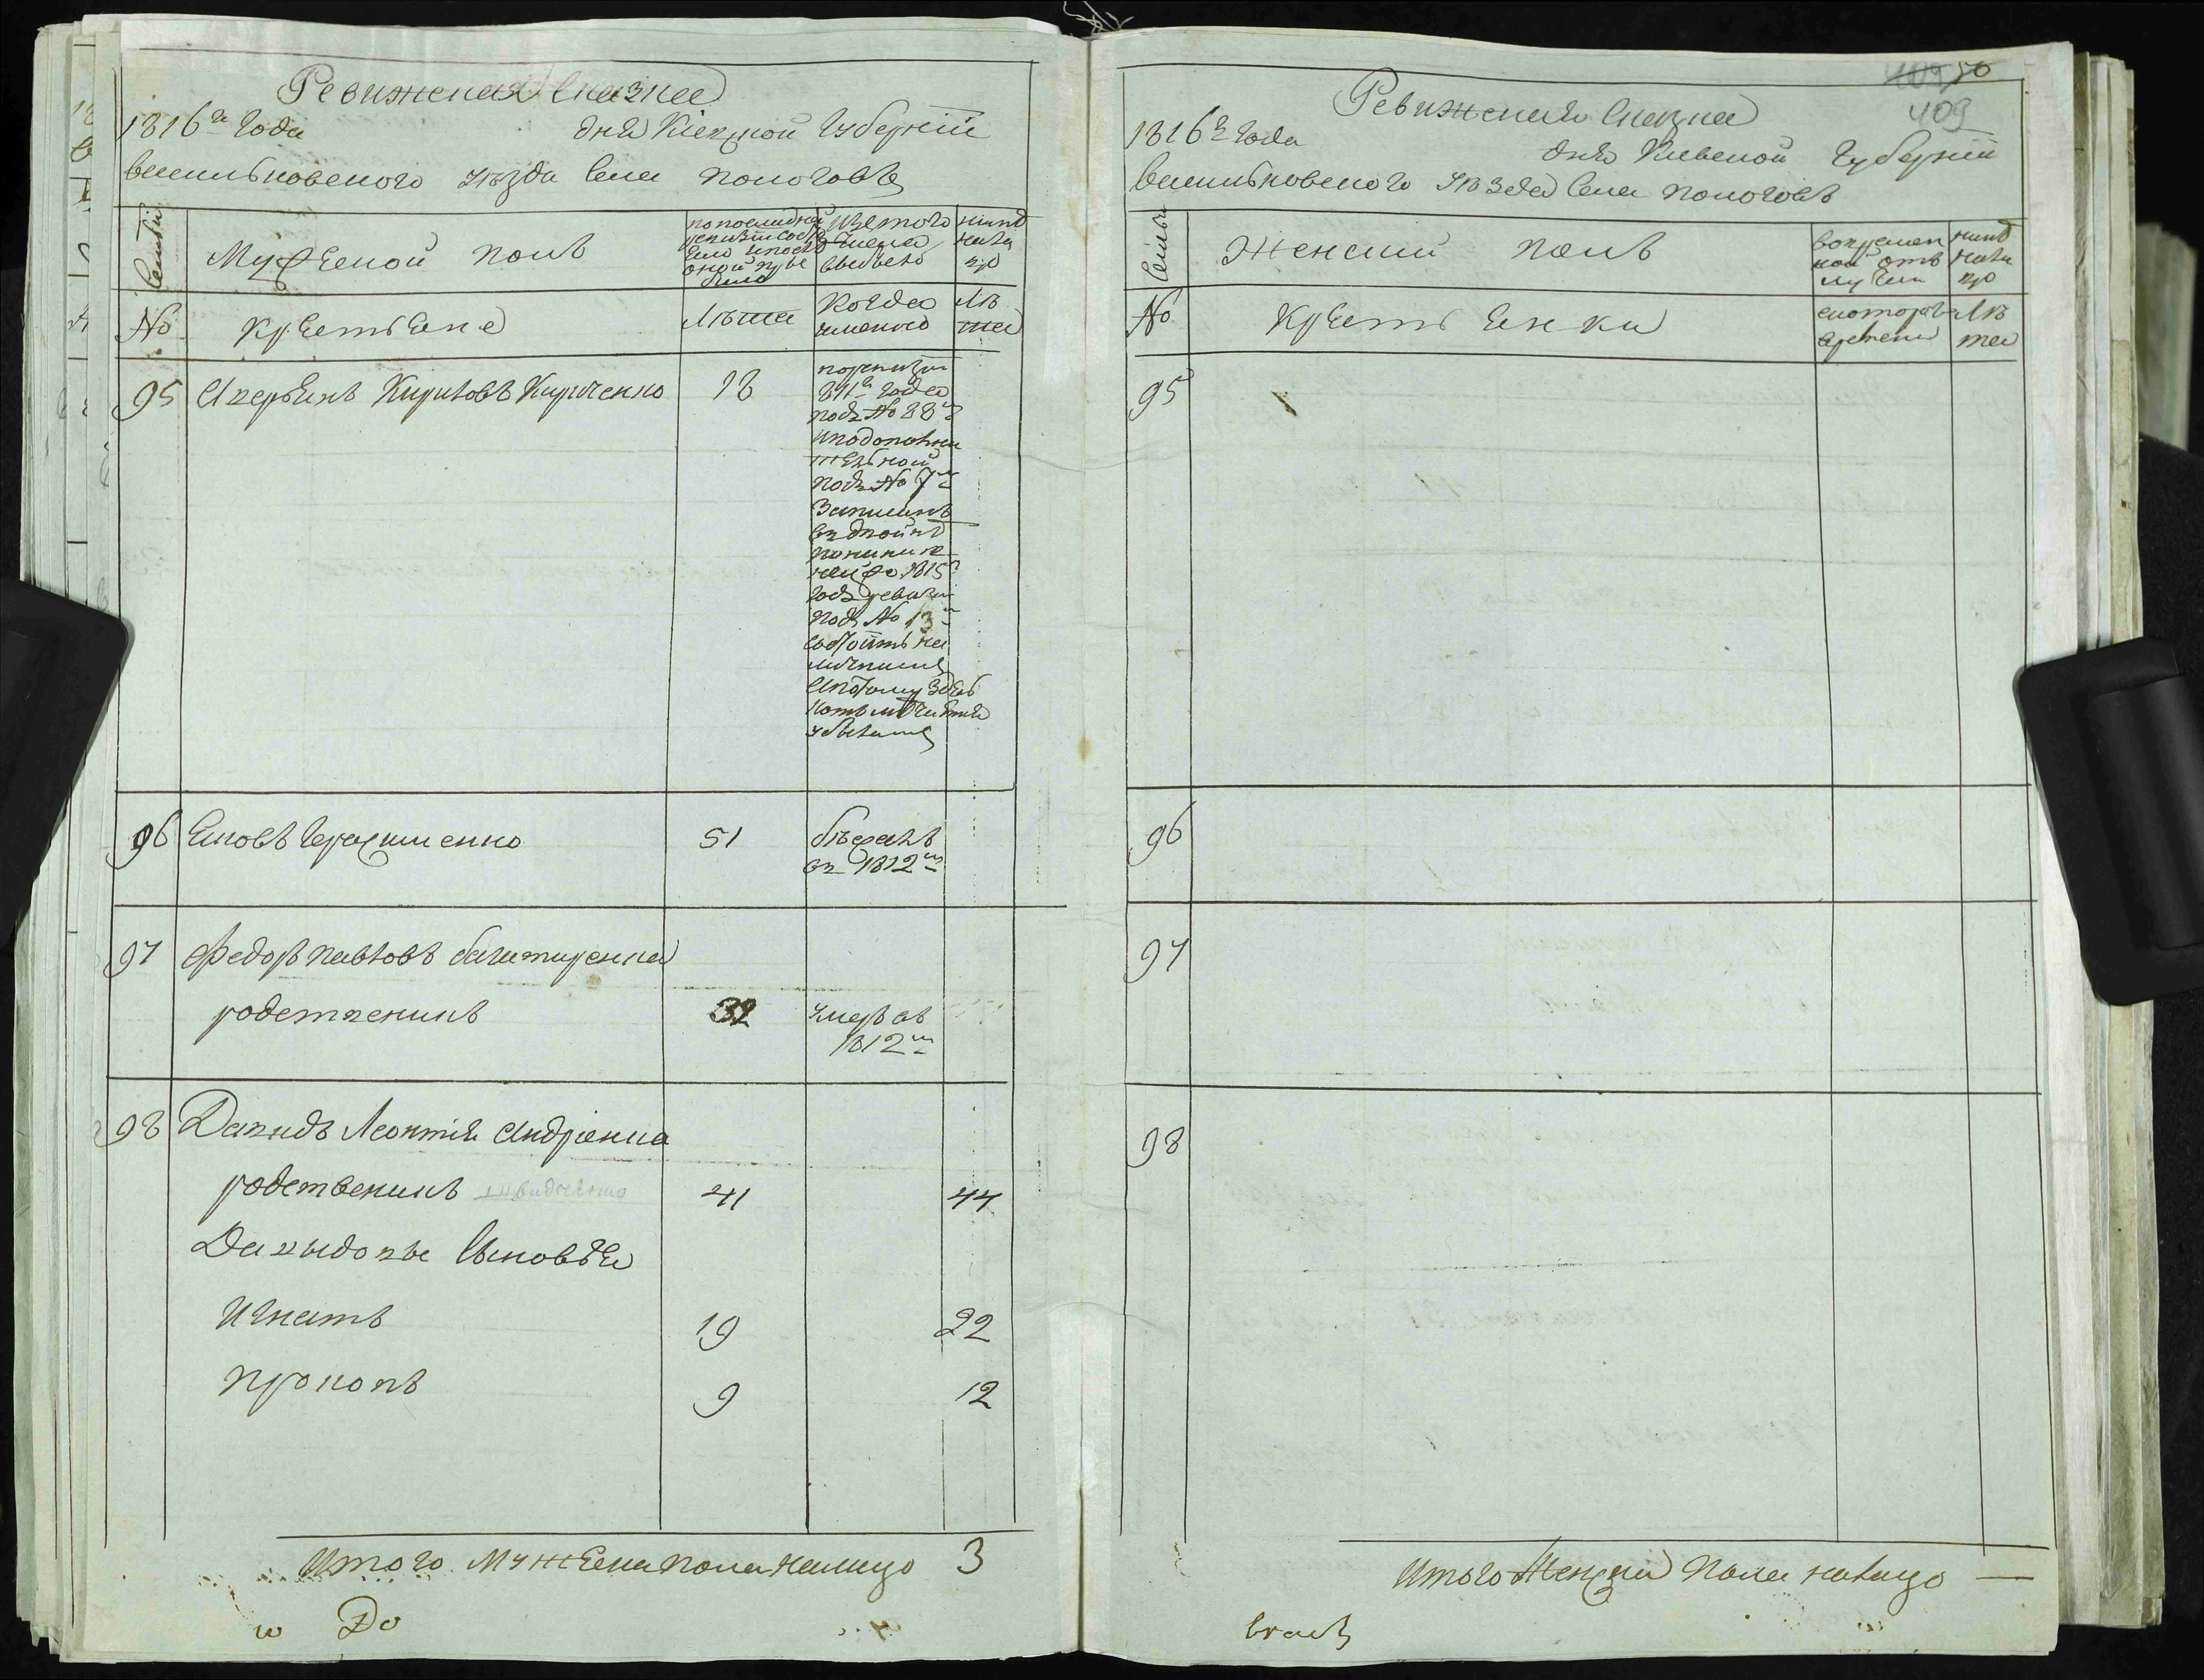 Ревижская Сказка
1816го Года дня Киевской Губернiи
васильковского уезда Села пологовъ
Семьи
Мужеской полъ
по последней ревизiи состояло и после оной прибыло
Изъ того числа выбыло
ныне на лицо
№
крестьяне
Лета
Когда именно
Лета
95 Аверьянъ Кириловъ Кириченко 18
по ревизiи
811го Года
подъ № 88м
и по дополни
тельной
подъ № 7м
Записанъ
вдвойне
по нинеш
ней же 1815го
Года ревизiи
подъ № 13м
состоитъ на
личным
и потому здесь
убылым
96 Яковъ Герасименко 51 бежалъ
въ 1812м
97 Федоръ павловъ
родственникъ 32 умеръ въ
1812м
98 Давидъ Леонтiя Андрiенка
родственникъ 41 44
Давыдовы Сыновья
Игнатъ 19 22
прокопъ 9 12
Итого Мужеска пола налицо 3
До
50
409
403
Ревижская Сказка
1816го Года дня Киевской Губернiи
васильковского уезда Села пологовъ
Семьи
Женский полъ
во временной отлучки
ныне на лицо
№
крестьянки
с которого времени
Лета
95
96
97
98
Итого Женска пола налицо —